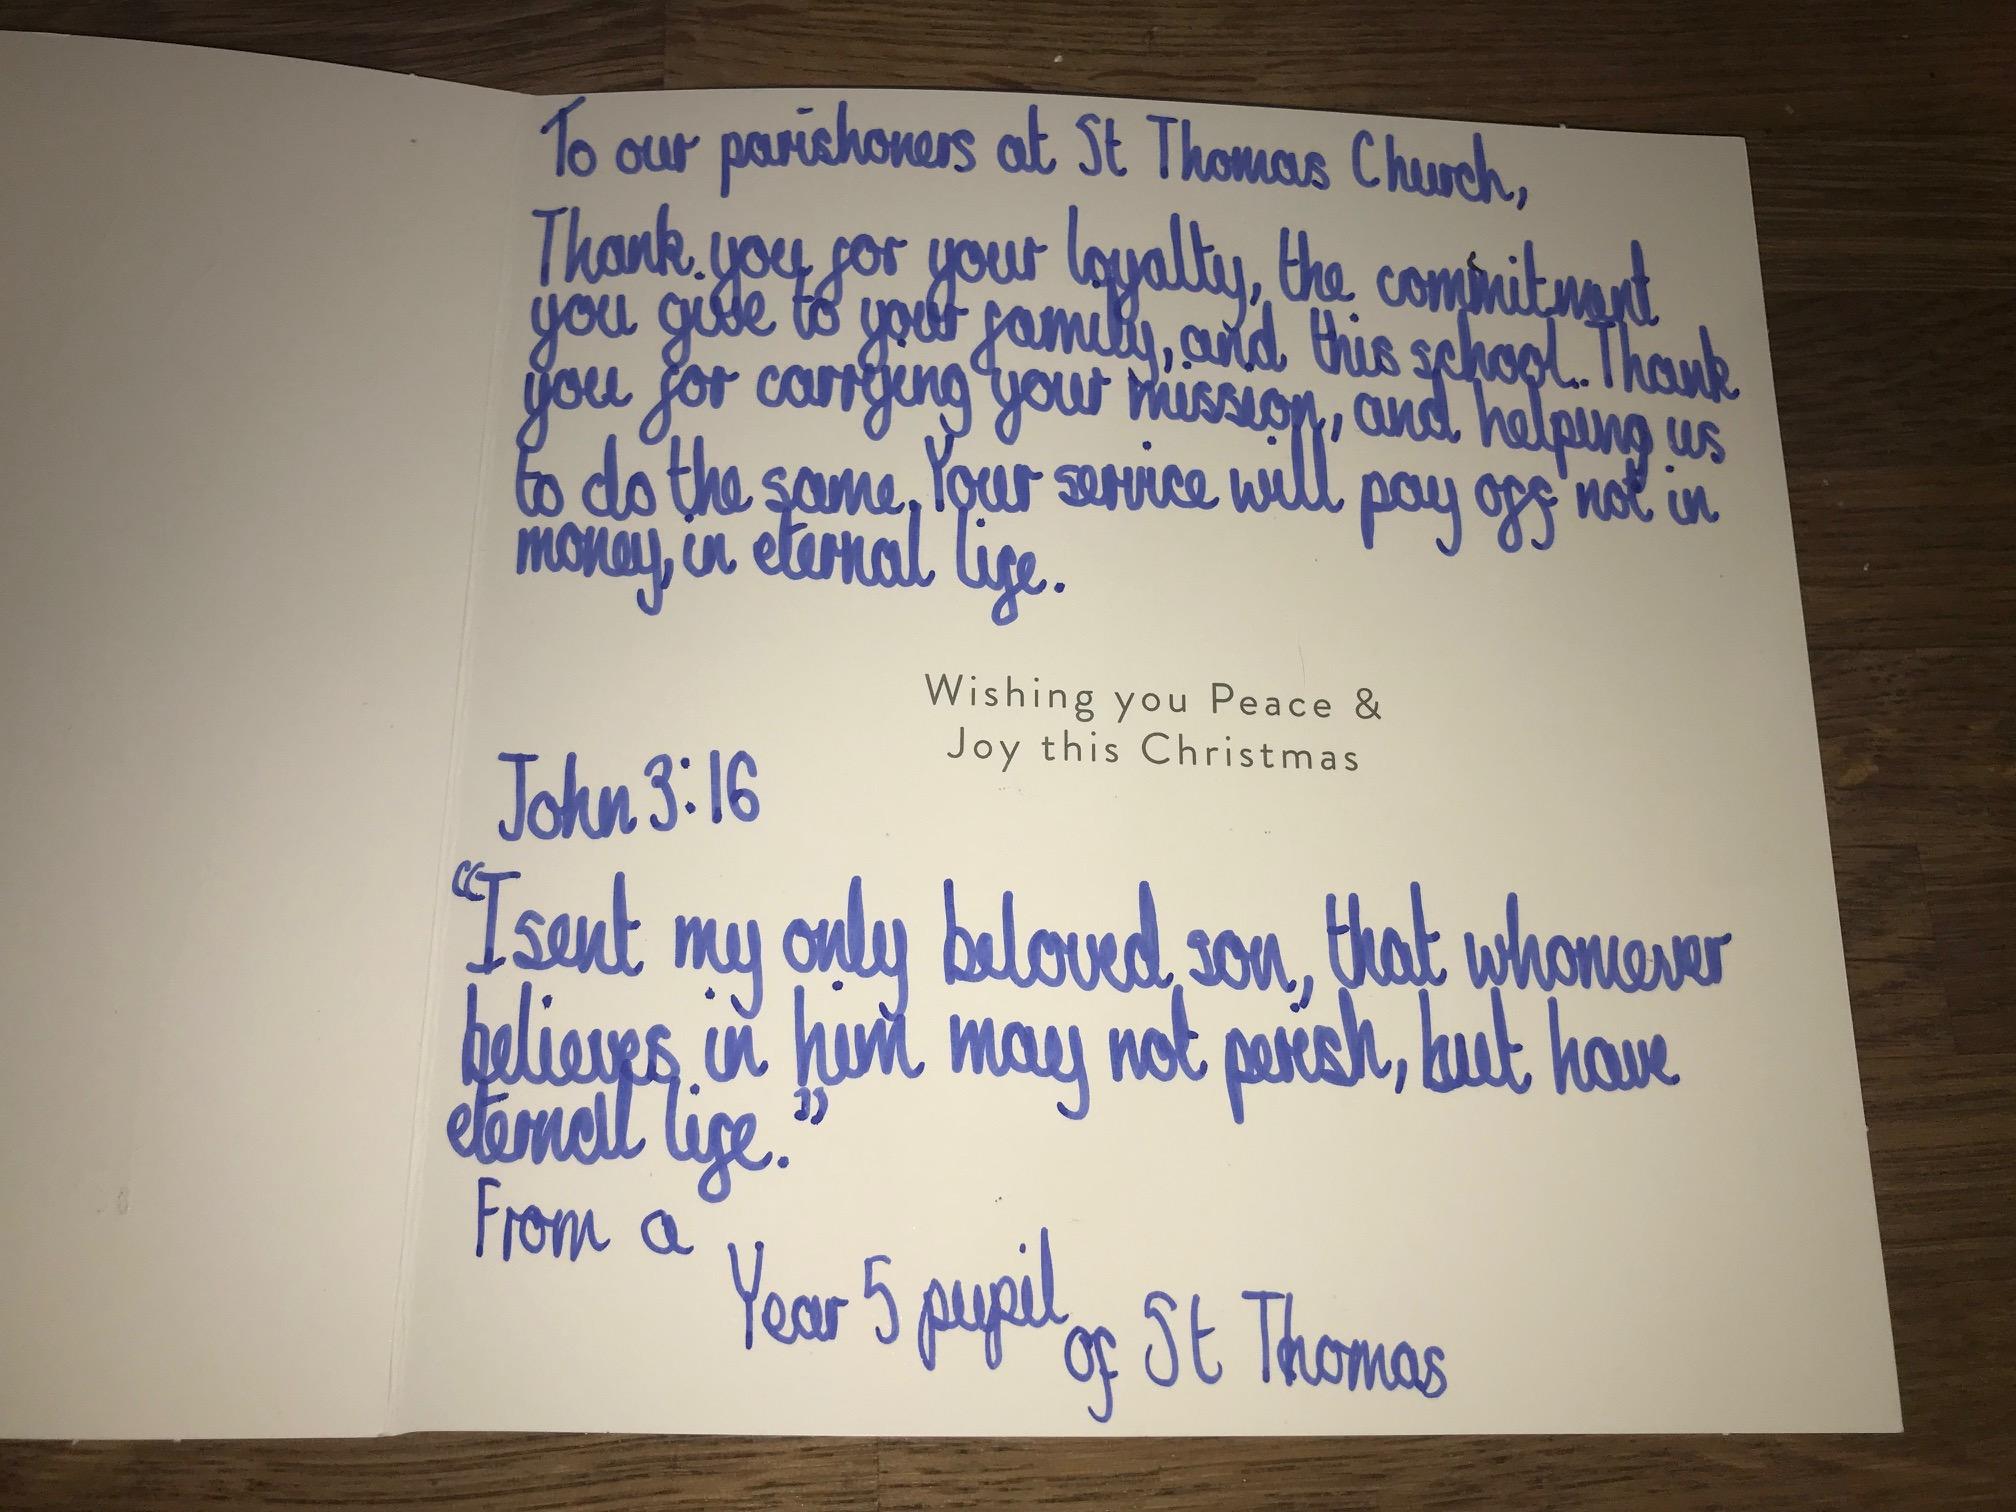 To our parishoners at St Thomas Church,
Thank you for your loyalty, the commitment
you give to your family, and this school. Thank
you for carrying your mission, and helping us
to do the same. Your service will pay off not in
money, in eternal life.
Wishing you Peace &
Joy this Christmas
John 3:16
“I sent my only beloved son, that whomever
believes in him may not perish, but have
eternal life.”
From a
Year 5 pupil
of St Thomas